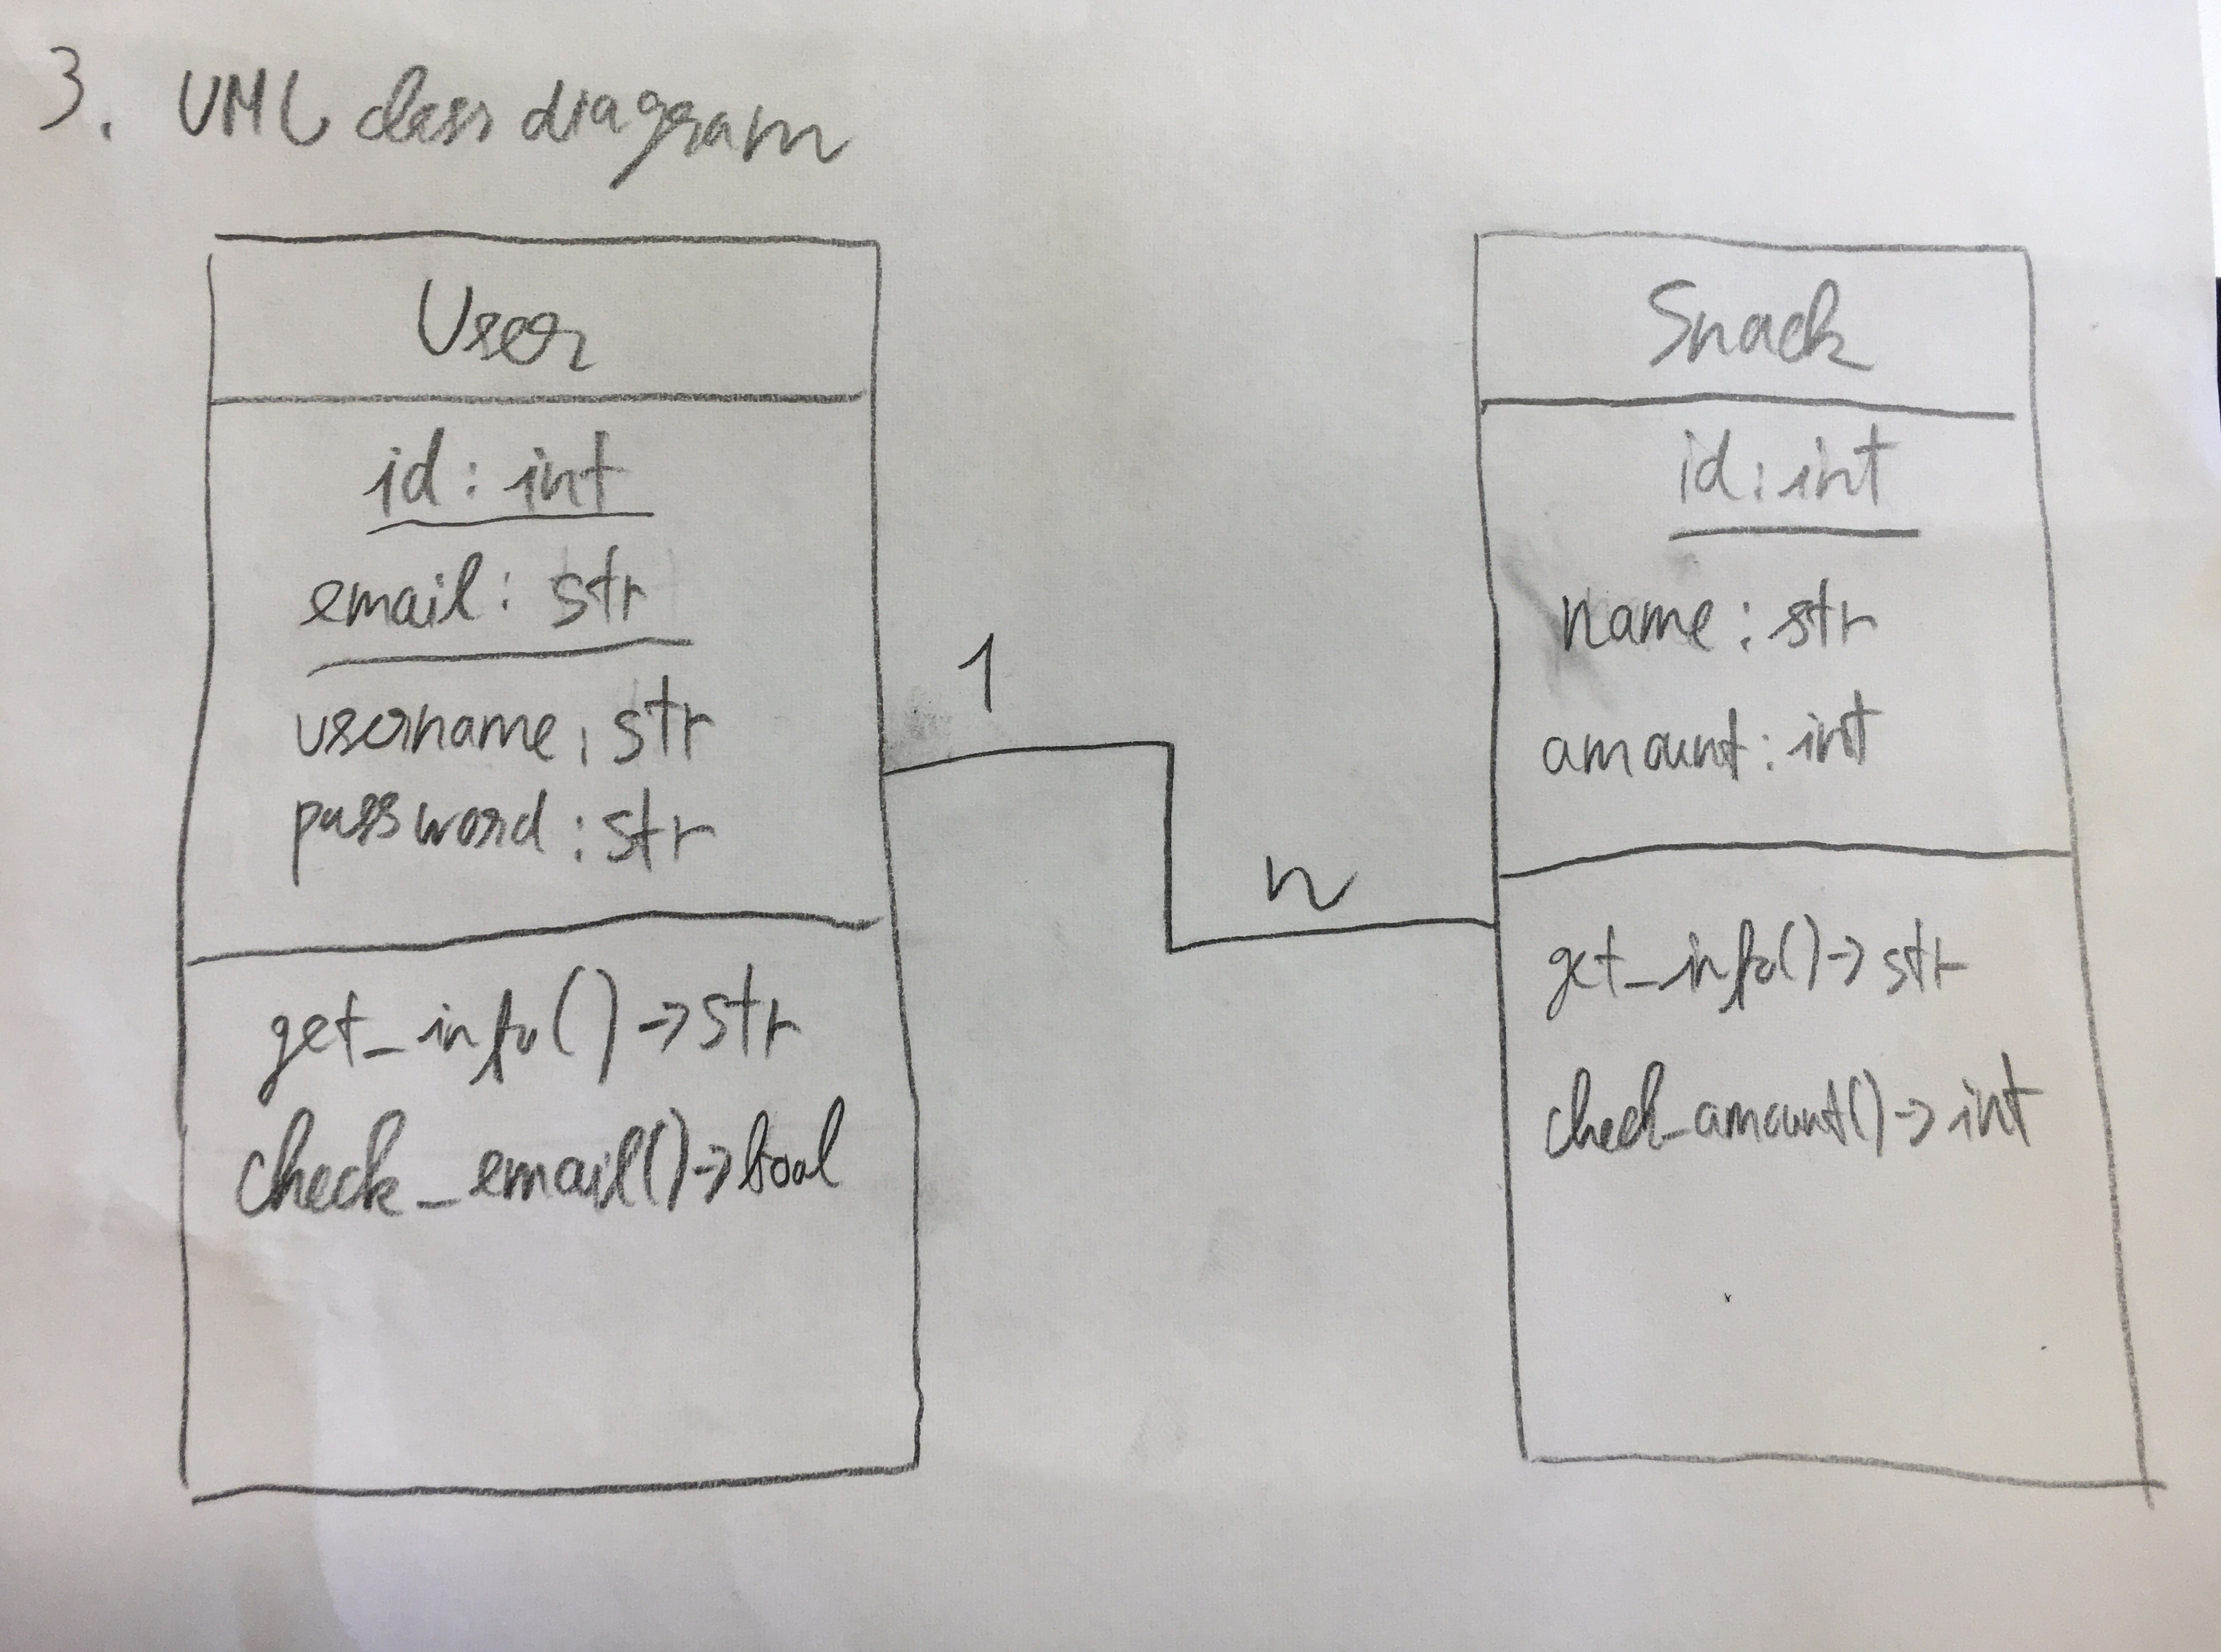 3. UML class diagram
User
id: int
email: str
username: str
password: str
get_info() -> str
check_email() -> bool
1
n
Snack
id: int
name: str
amount: int
get_info() -> str
check_amount() -> int